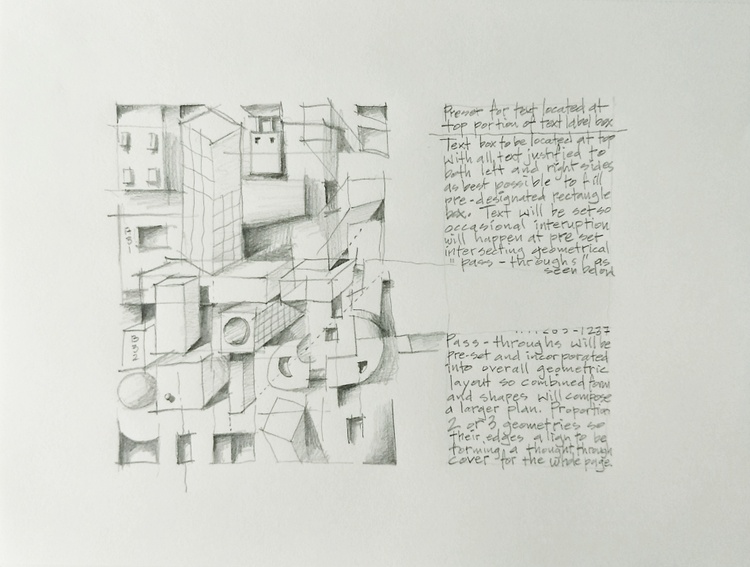 Preset for text located at
top portion of text label box
Text box to be located at top
with all text justified to
both left and right sides
as best possible to fill
pre-designated rectangle
box. Text will be set so
occasional interuption
will happen at pre set
intersecting geometrical
"pass-throughs" as
seen below
Pass-throughs will be
pre-set and incorporated
into overall geometric
layout so combined form
and shapes will compose
a larger plan. Proportion
2 or 3 geometries so
their edges align to be
forming a thought through
cover for the whole page.